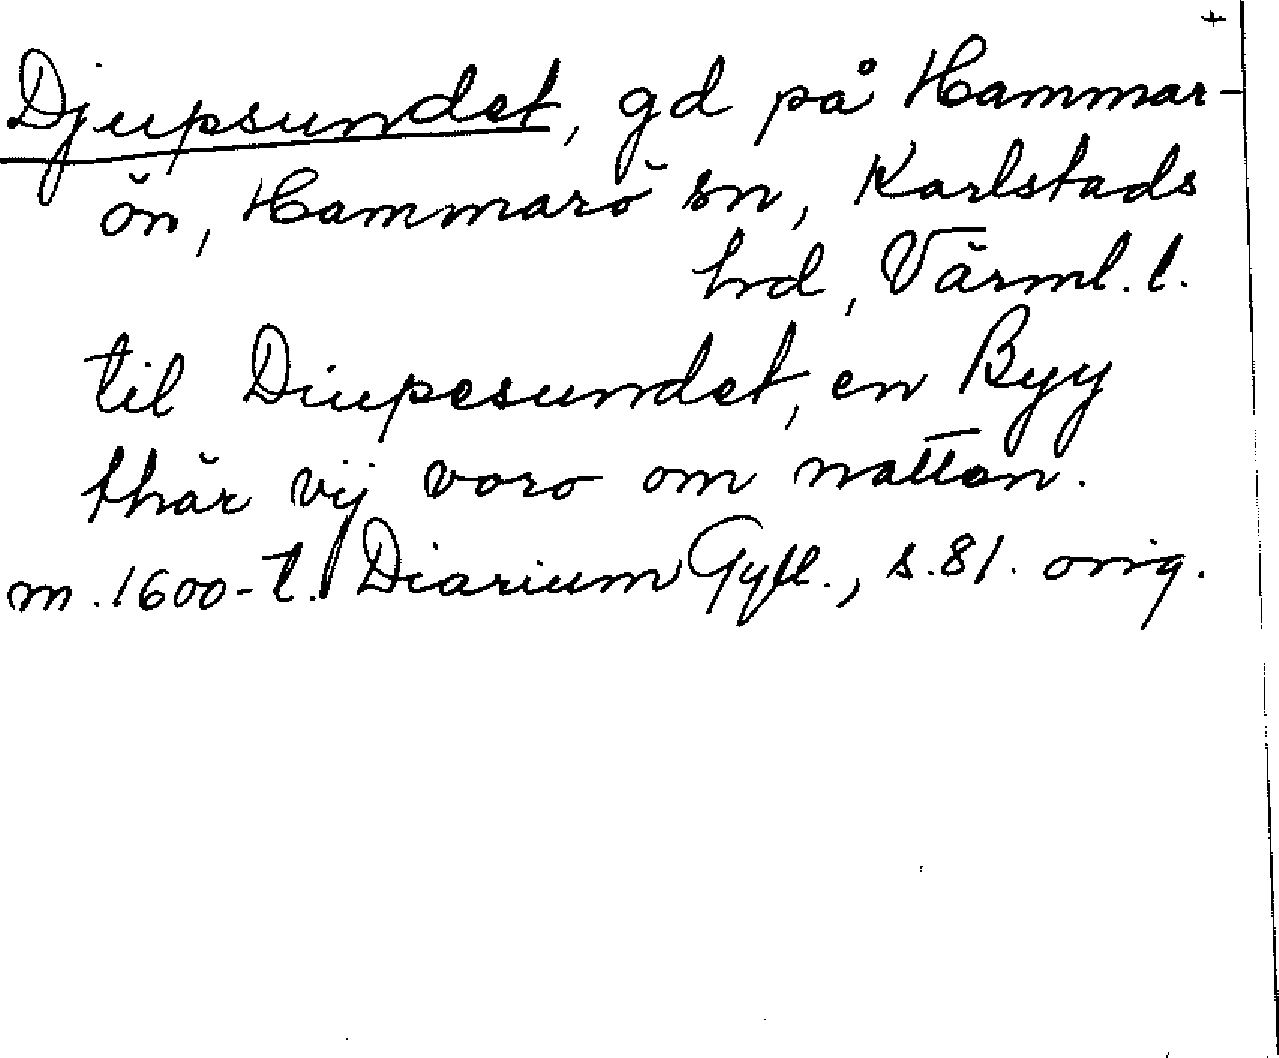 Djupsundet, gd på Hammar-
ön, Hammarö sn, Karlstads
hd, Värml. l.
til Diupesundet, en Byy
thär vij voro om natton.
m. 1600-t. Diarium Gyll., s. 81. orig.